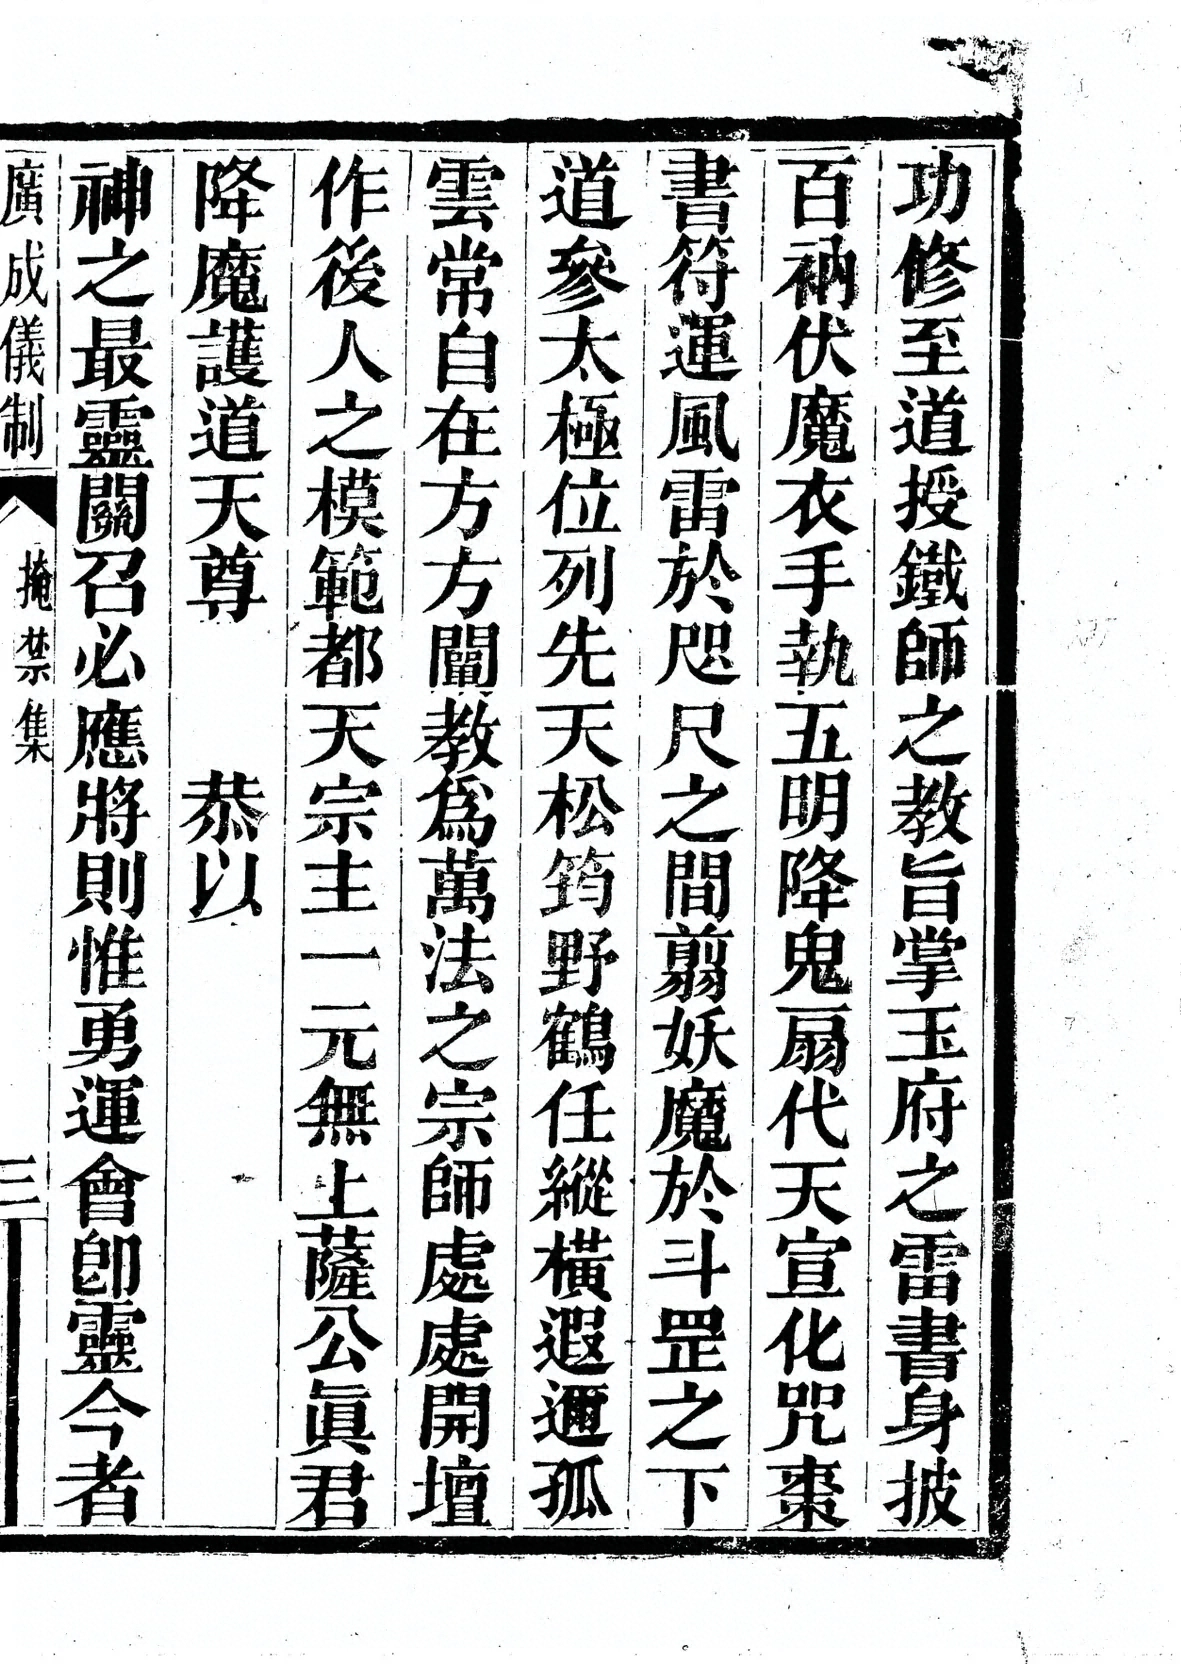 功修至道授鐵師之教旨掌玉府之雷書身披
百衲伏魔衣手執五明降鬼扇代天宣化咒棗
書符運風雷於咫尺之間翦妖魔於斗罡之下
道參太極位列先天松筠野鶴任縱橫遐邇孤
雲常自在方方闡教爲萬法之宗師處處開壇
作後人之模範都天宗主一元無上薩公眞君
降魔護道天尊　　恭以
神之最靈關召必應將則惟勇運會卽靈今者
廣成儀制　掩禁集　三